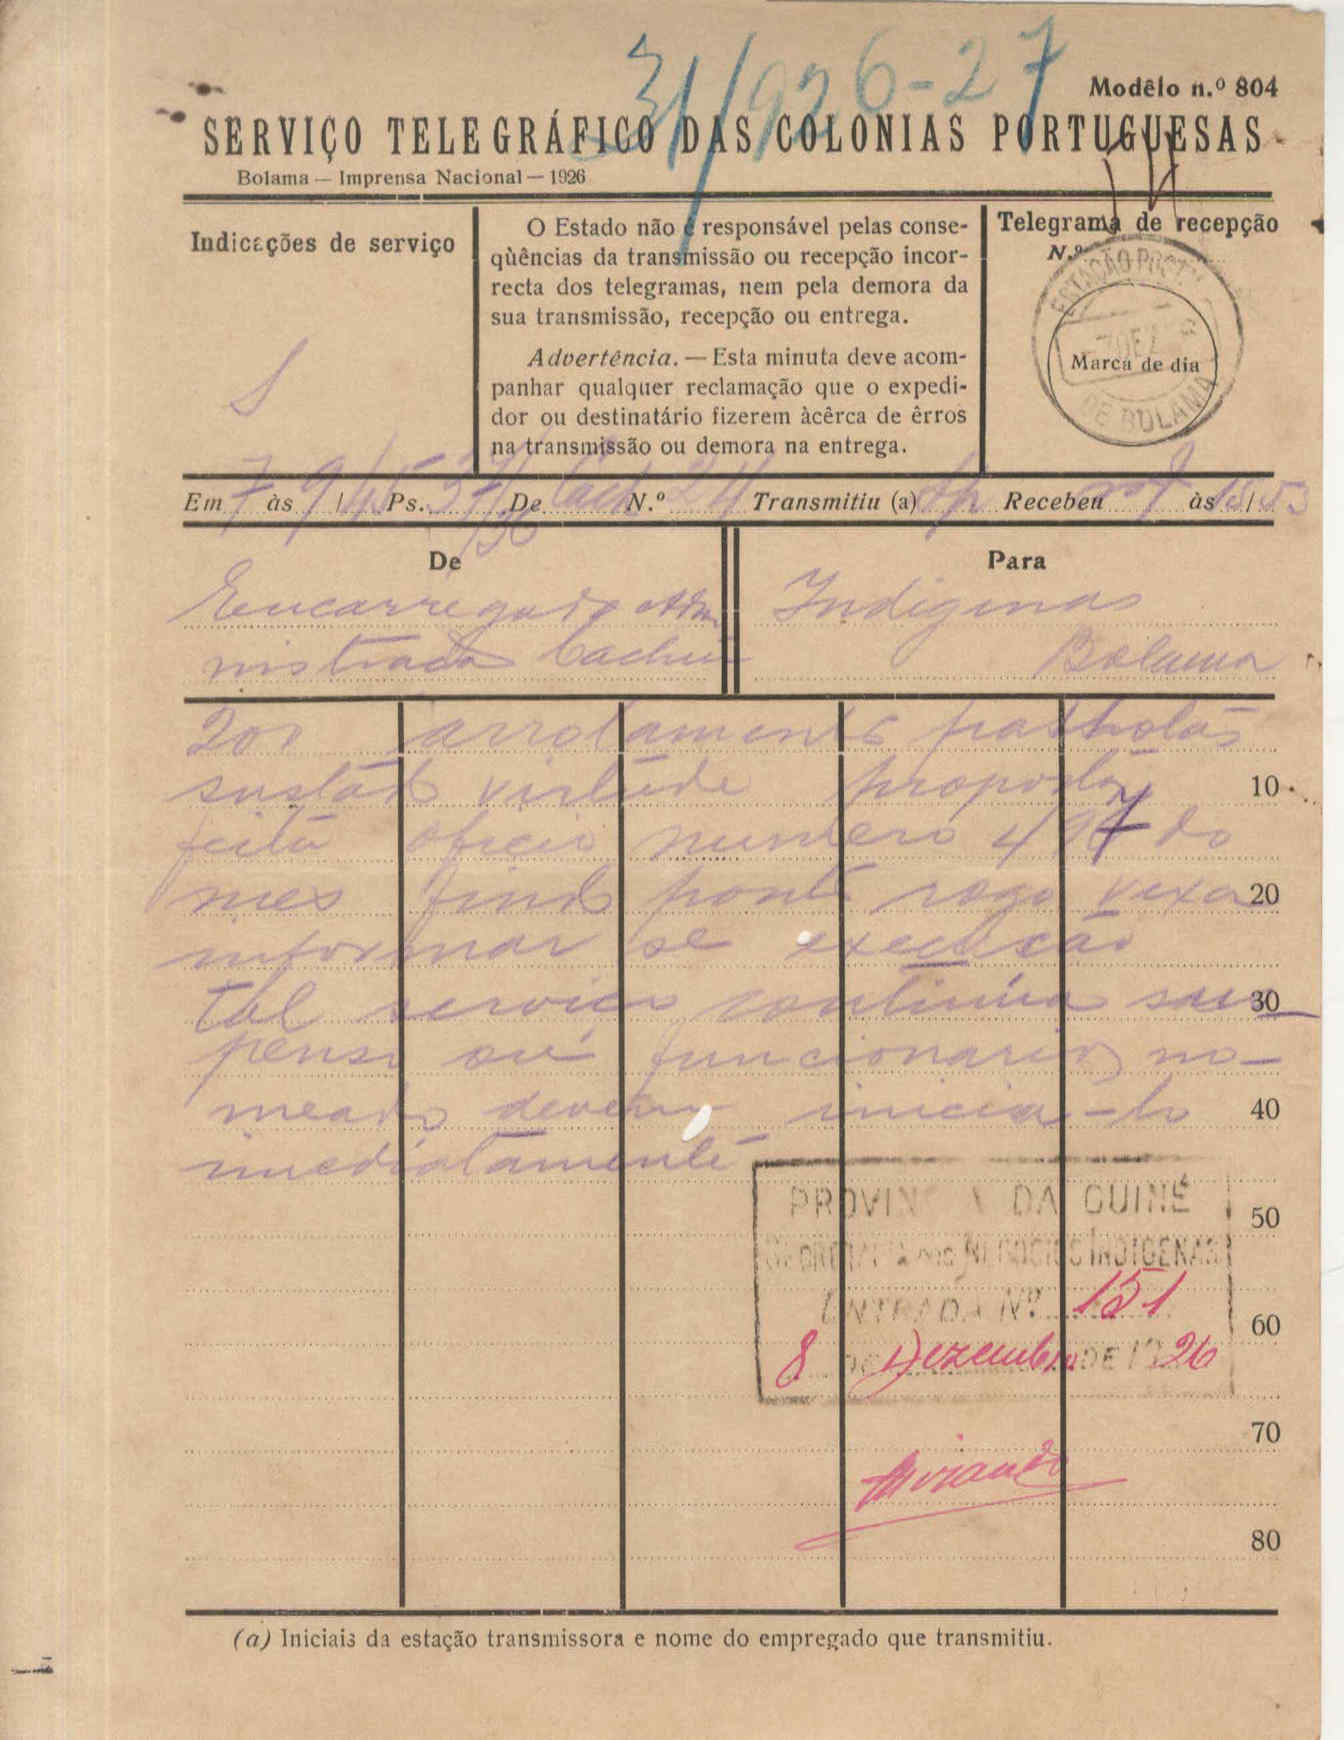 31/926-27
Modêlo n.º 804
SERVIÇO TELEGRÁFICO DAS COLONIAS PORTUGUESAS
Bolama — Imprensa Nacional — 1926
Indicações de serviço
S
O Estado não é responsável pelas conse-
qùências da transmissão ou recepção incor-
recta dos telegramas, nem pela demora da
sua transmissão, recepção ou entrega.
Advertência. — Esta minuta deve acom-
panhar qualquer reclamação que o expedi-
dor ou destinatário fizerem àcêrca de êrros
na transmissão ou demora na entrega.
Telegrama de recepção
N.º
ESTAÇÃO POSTAL
Marca de dia
DE BOLAMA
Em 7 às 9/45 Ps. 37/36 De N.º 24 Transmitiu (a) Recebeu às 18/53
De
Encarregado Admi
nistrada Cacheu
Para
Indigenas
Bolama
201 arrolamento palhotas
sustado virtude proposta
feita oficio numero 497 do
mes findo ponto rogo vexa
10
20
informar se execução
tal serviço continúa sus
30
penso ou funcionario no-
meado devem inicia-lo
40
imediatamente
PROVINCIA DA GUINÉ
50
NEGOCIOS INDIGENAS
ENTRADA Nº 151
60
8 DE Dezembro DE 1926
70
Miranda
80
(a) Iniciais da estação transmissora e nome do empregado que transmitiu.